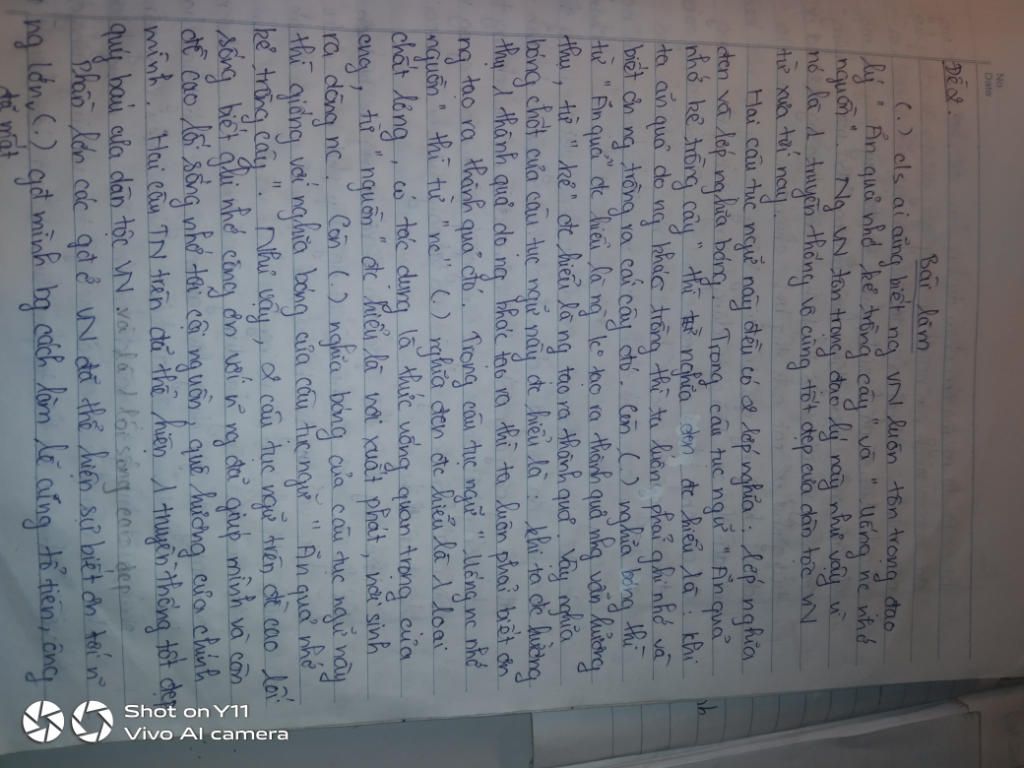 No.
Date
Đề 2:
Bài làm
(.) c/s ai cũng biết ng VN luôn tôn trọng đạo
lý " Ăn quả nhớ kẻ trồng cây " và " Uống nc nhớ
nguồn ". Ng VN tôn trọng đạo lý này như vậy vì
nó là 1 truyền thống vô cùng tốt đẹp của dân tộc VN
từ xưa tới nay.
Hai câu tục ngữ này đều có 2 lớp nghĩa: lớp nghĩa
đen và lớp nghĩa bóng. Trong câu tục ngữ " Ăn quả
nhớ kẻ trồng cây " thì nghĩa đen đc hiểu là: khi
ta ăn quả do ng khác trồng thì ta luôn phải ghi nhớ và
biết ơn ng trồng ra cái cây đó. Còn (.) nghĩa bóng thì
từ " Ăn quả" đc hiểu là ng k tạo ra thành quả nhg vẫn hưởng
thụ, từ " kẻ" đc hiểu là ng tạo ra thành quả. Vậy nghĩa
bóng chốt của câu tục ngữ này đc hiểu là: khi ta đc hưởng
thụ 1 thành quả do ng khác tạo ra thì ta luôn phải biết ơn
ng tạo ra thành quả đó. Trong câu tục ngữ " Uống nc nhớ
nguồn " thì từ " nc" (.) nghĩa đen đc hiểu là 1 loại
chất lỏng, có tác dụng là thức uống quan trọng của
ng, từ " nguồn " đc hiểu là nơi xuất phát, nơi sinh
ra dòng nc. Còn (.) nghĩa bóng của câu tục ngữ này
thì giống với nghĩa bóng của câu tục ngữ " Ăn quả nhớ
kẻ trồng cây ". Như vậy, 2 câu tục ngữ trên đề cao lối
sống biết ghi nhớ công ơn với n~ ng đã giúp mình và còn
đề cao lối sống nhớ tới cội nguồn, quê hương của chính
mình. Hai câu TN trên đã thể hiện 1 truyền thống tốt đẹp
quý báu của dân tộc VN
Phần lớn các gđ ở VN đã thể hiện sự biết ơn tới n~
ng lớn (.) gđ mình bg cách làm lễ cúng tổ tiên, ông
đã mất
Shot on Y11
Vivo AI camera